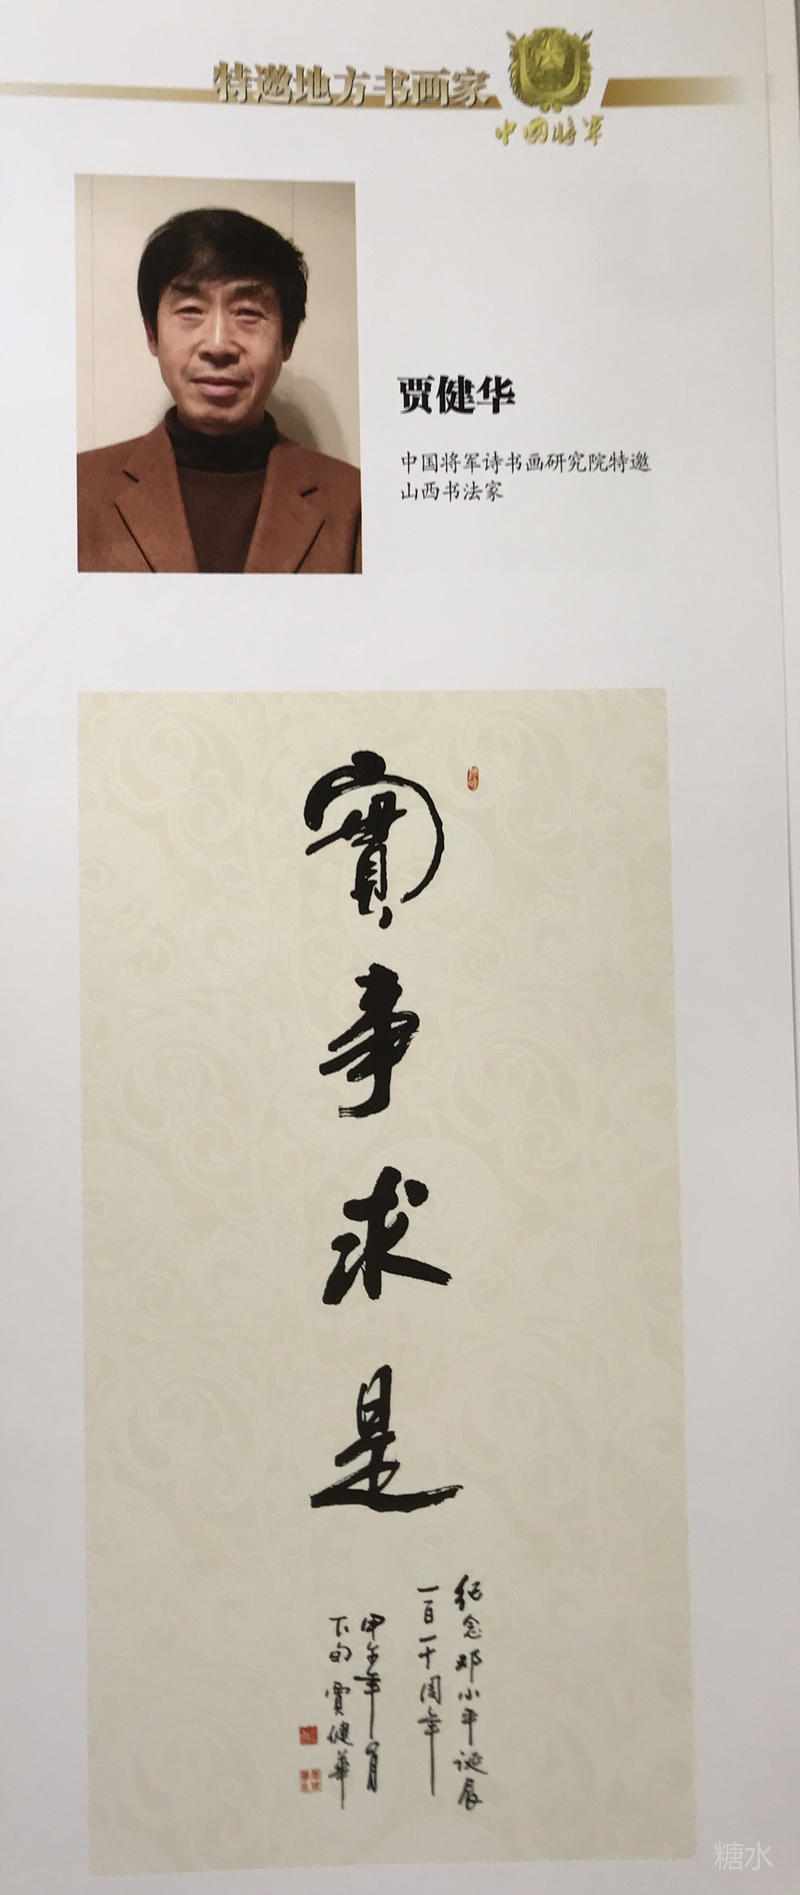 特邀地方书画家
中国将军
贾健华
中国将军诗书画研究院特邀
山西书法家
實事求是
纪念邓小平诞辰
一百一十周年
甲午年一月
下旬 賈健華
糖水